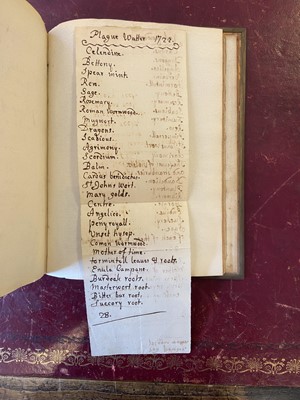 Plague Watter 1722.
Celendine.
Bettony.
Spear mint.
Rue.
Sage.
Rosemary.
Roman wormwood.
Mugwort.
Dragons.
Scabious.
Agrimony.
Scordium.
Balm.
Cardus benedictus.
St Johns Wort.
Mary golds.
Centre.
Angelica.
Peny royall.
Unset hysop.
Coman wormwood.
Mother of time.
tormintill leaves & roots.
Enula Campane.
Burdoak roots.
Masterwort root.
Bitter bur root.
Succory root.
28.